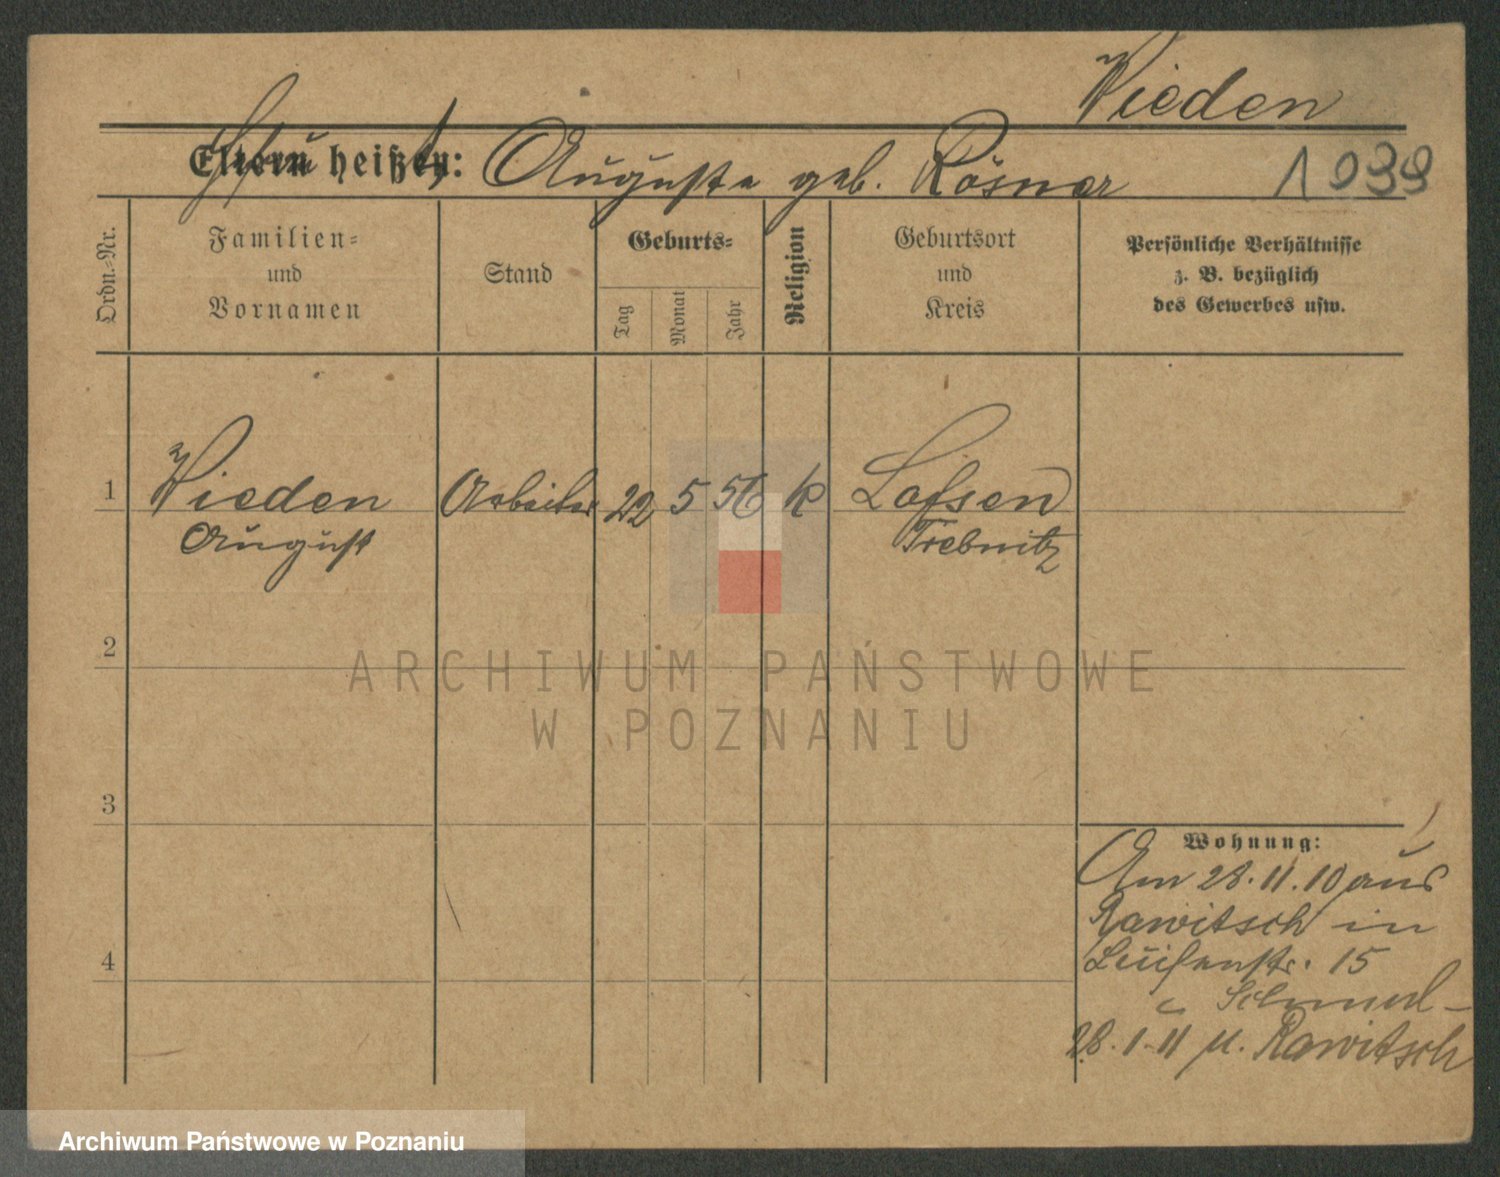 Wieden
Eltern heißen: Auguste geb. Rösner
1939
Ordn.-Nr.
Familien-
und
Vornamen
Stand
Geburts-
Tag
Monat
Jahr
Religion
Geburtsort
und
Kreis
Persönliche Verhältnisse
z. B. bezüglich
des Gewerbes usw.
1 Wieden Arbeiter 22 5 56 k
August Trebnitz
2
ARCHIWUM PAŃSTWOWE
W POZNANIU
3
Wohnung:
Am 28.11.10 aus
Rawitsch in
Luisenstr. 15
4
28.1.11 n. Rawitsch
Archiwum Państwowe w Poznaniu